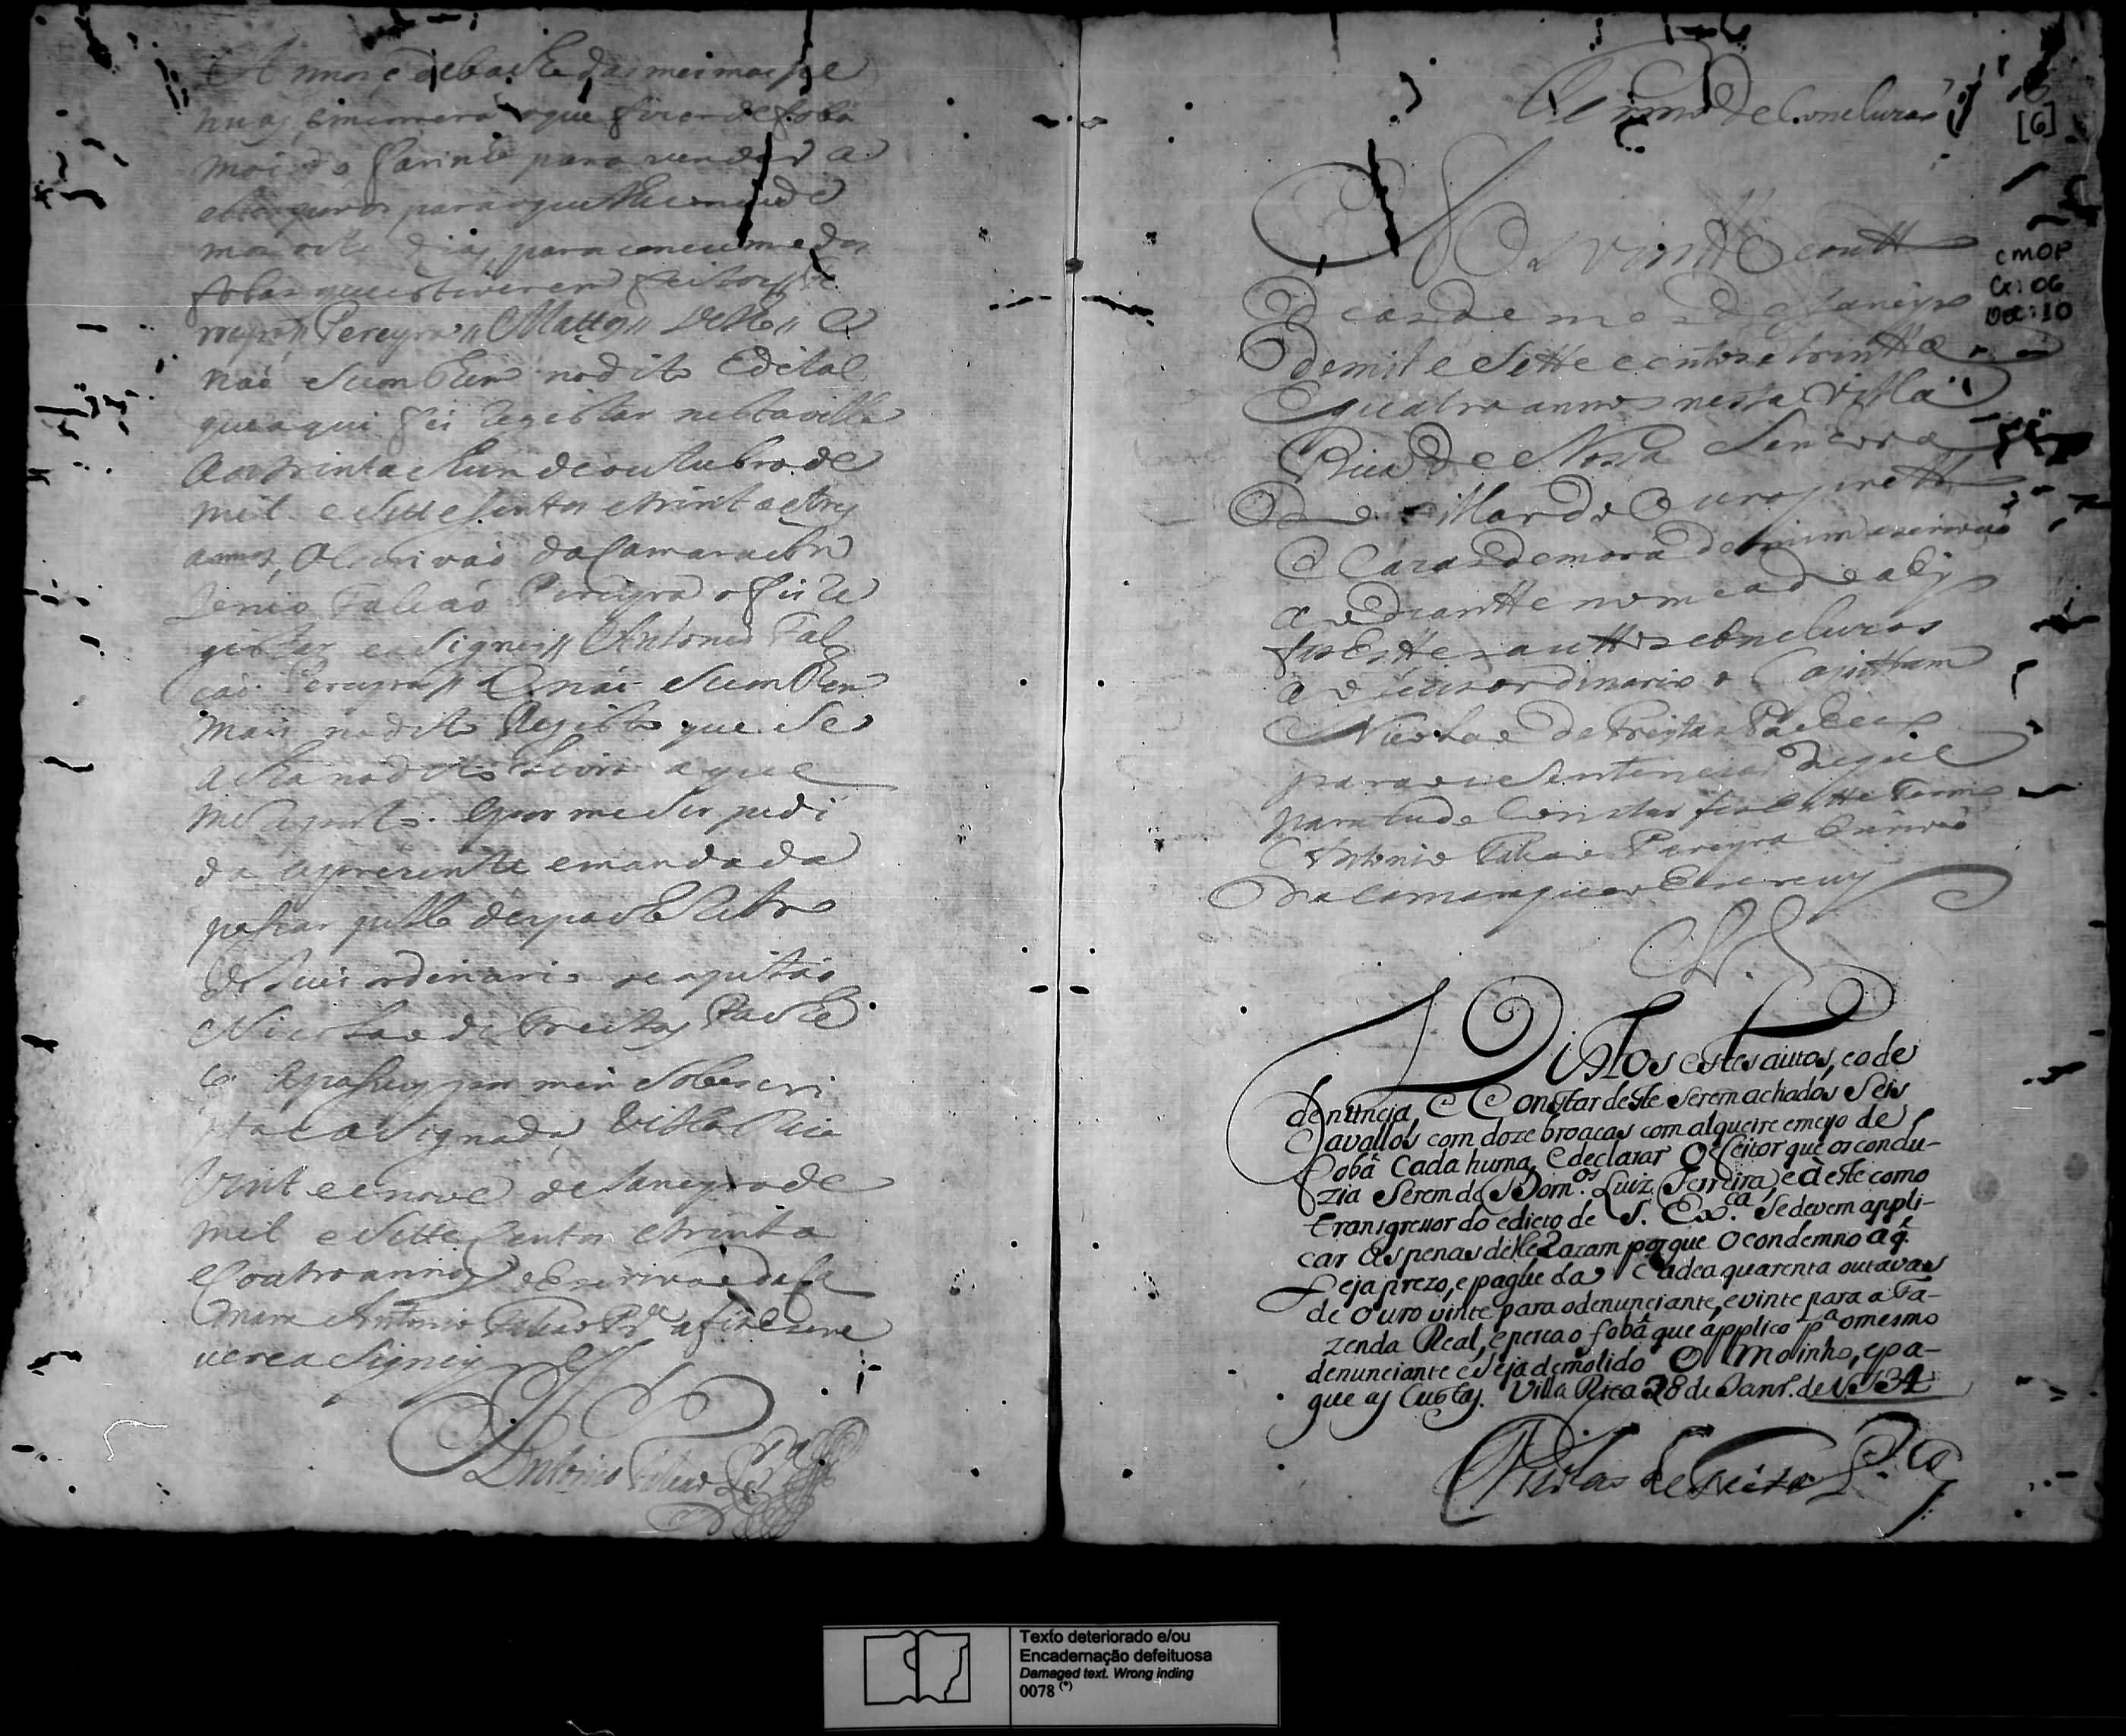 Annos e debaicho das mesmas pe
nas
moido Farinha para vender a
alqueires para o que lhe concede
mais oito dias para consumo dos
fobas que estiverem feitos //
// Pereyra // Mattos // Velho // E
naõ Se continha no dito Edital
que aqui fis Registar nesta villa
aos trinta e hum de outubro de
mil e Sette Sentos e trinta e tres
annos, O Escrivaõ da Camara An
tonio Falcaõ Pereyra o fis Re
gistar e asigney // Antonio Fal
caõ Pereyra // E naõ Se continha
mais no dito Registo que Se
acha no dito Livro a que
me Reporto. E por me Ser pedi
da a prezente e mandada
pasar pello despacho Retro
do Juis ordinario o capitaõ
Nicolao de Freitas Pache
co a pasey por mim Sobescri
pta e asignada Villa Rica
Vinte e nove de Janeyro de
mil e Sette Centos e trinta
e Coatro annos e Escrivaõ da Ca
mara Antonio Falcaõ Pr.ª a fis escre
ver e asigney
Antonio Falcaõ Pr.ª
Termo de Concluzaõ
[6]
CMOP
Cx: 06
Doc: 10
Aos vinte e coatt
Dias do mes de Janeyro
de mil e Sette centos e trintta
e quatro annos nesta Villa
Rica de Nossa Senhora
do Pillar do Ouro pretto
e Cazas de mora de mim escrivaõ
ao diantte nomeado e ahy
fis Esttes auttos concluzos
ao Juis ordinario o Capittam
Nicolao de Freytas Pacheco
para os Sentenciar de que
para tudo Constar fis este Termo
Antonio Falcaõ Pereyra Escrivaõ
da Camara que o Escrevy
Vistos estes autos, e o de
denuncia, e Constar deste Serem achados Seis
Cavallos com doze broacas com alqueire e meyo de
Fobâ Cada huma, e declarar O feitor que os condu-
zia Serem de Dom.os Luiz Ferreira, e à este como
transgressor do edicto de S. Ex.ca Se devem appli-
car as penas delle Razam porque O condemno a q̃
Seja prezo, e pague da Cadea quarenta outavas
de Ouro vinte para o denunciante, e vinte para a Fa-
zenda Real, e perca o fobâ que applico p.a o mesmo
denunciante e Seja demolido O Moinho, e pa-
gue as Custas. Villa Rica 28 de Janr.o de 1734
Nicolao de Freitas P.co
Texto deteriorado e/ou
Encadernação defeituosa
Damaged text. Wrong inding
0078 (*)